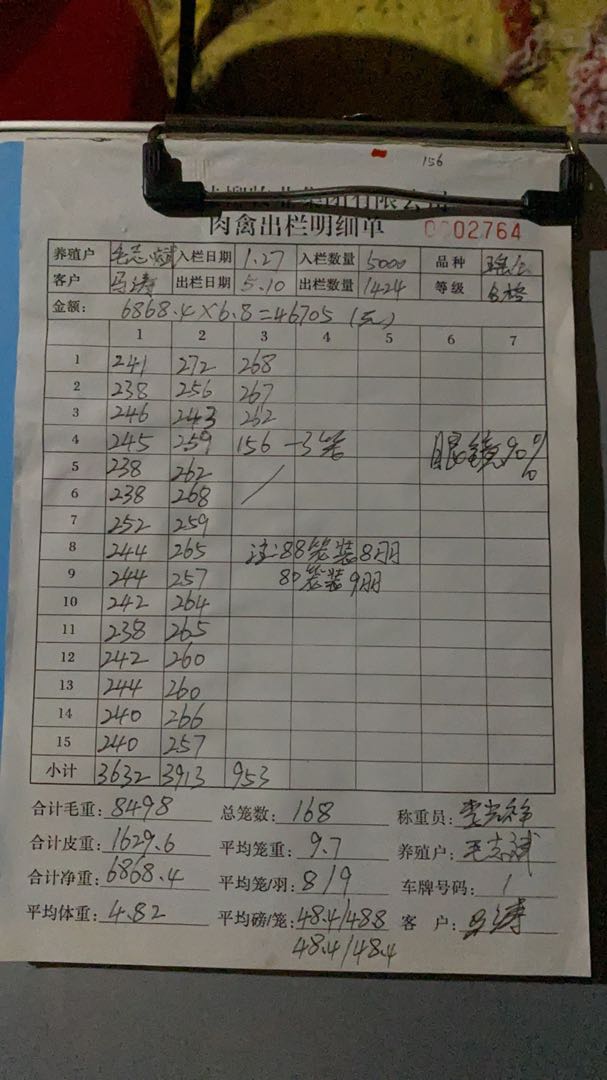 156
集团有限公司
肉禽出栏明细单 0002764
养殖户 毛志斌 入栏日期 1.27 入栏数量 5000 品种
客户 马涛 出栏日期 5.10 出栏数量 1424 等级 合格
金额: 6868.4×6.8=46705(元)
1 2 3 4 5 6 7
1 241 272 268
2 238 256 267
3 246 243 262
4 245 259 156 -3笼 眼镜90%
5 238 262
6 238 268
7 252 259
8 244 265 注:88笼装8羽
9 244 257 80笼装9羽
10 242 264
11 238 265
12 242 260
13 244 260
14 240 266
15 240 257
小计 3632 3913 953
合计毛重: 8498 总笼数: 168 称重员:
合计皮重: 1629.6 平均笼重: 9.7 养殖户: 毛志斌
合计净重: 6868.4 平均笼/羽: 8/9 车牌号码: 1
平均体重: 4.82 平均磅/笼: 48.4/48.8 客 户: 马涛
48.4/48.4